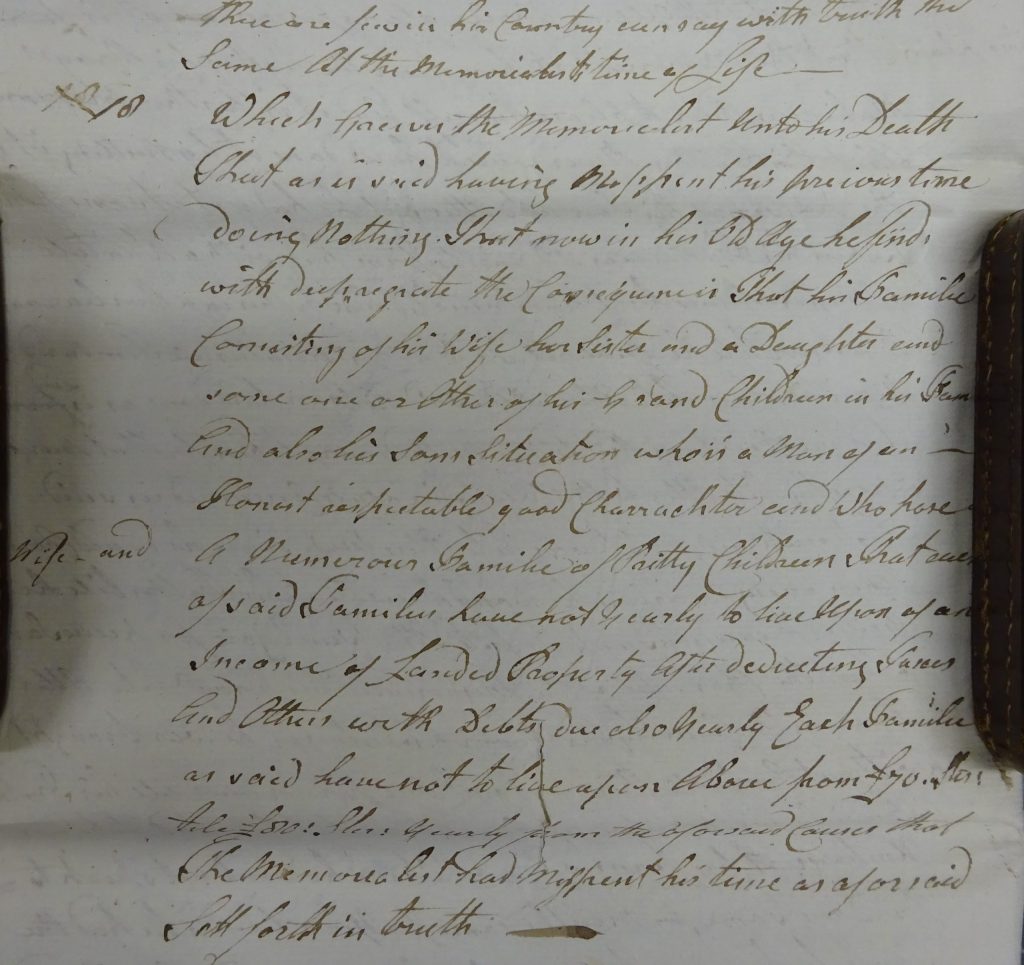 there are few in his Country can say with truth the
Same At the Memorialests time of Life —
18
Which Greives the Memorialest Unto his Death
That as is said having Misspent his precious time
doing Nothing. That now in his Old Age he finds
with deep regrate the Consequencis That his Familie
Consisting of his Wife her Sister and a Daughter and
some one or Other of his Grand Children in his Fam
And also his Sons Situation who is a Man of an —
Honest respectable good Charrachter and Who have
Wife - and
A Numerous Familie of Pritty Children That
of said Familes have not Yearly to live Upon of an
Income of Landed Property After deducting Taxes
And Others with Debts due also Yearly Each Familie
as said have not to live upon Above from £70. Ster:
£80: Ster: Yearly from the aforsaid Causes that
The Memorialest had Misspent his time as aforsaid
Sett forth in truth —